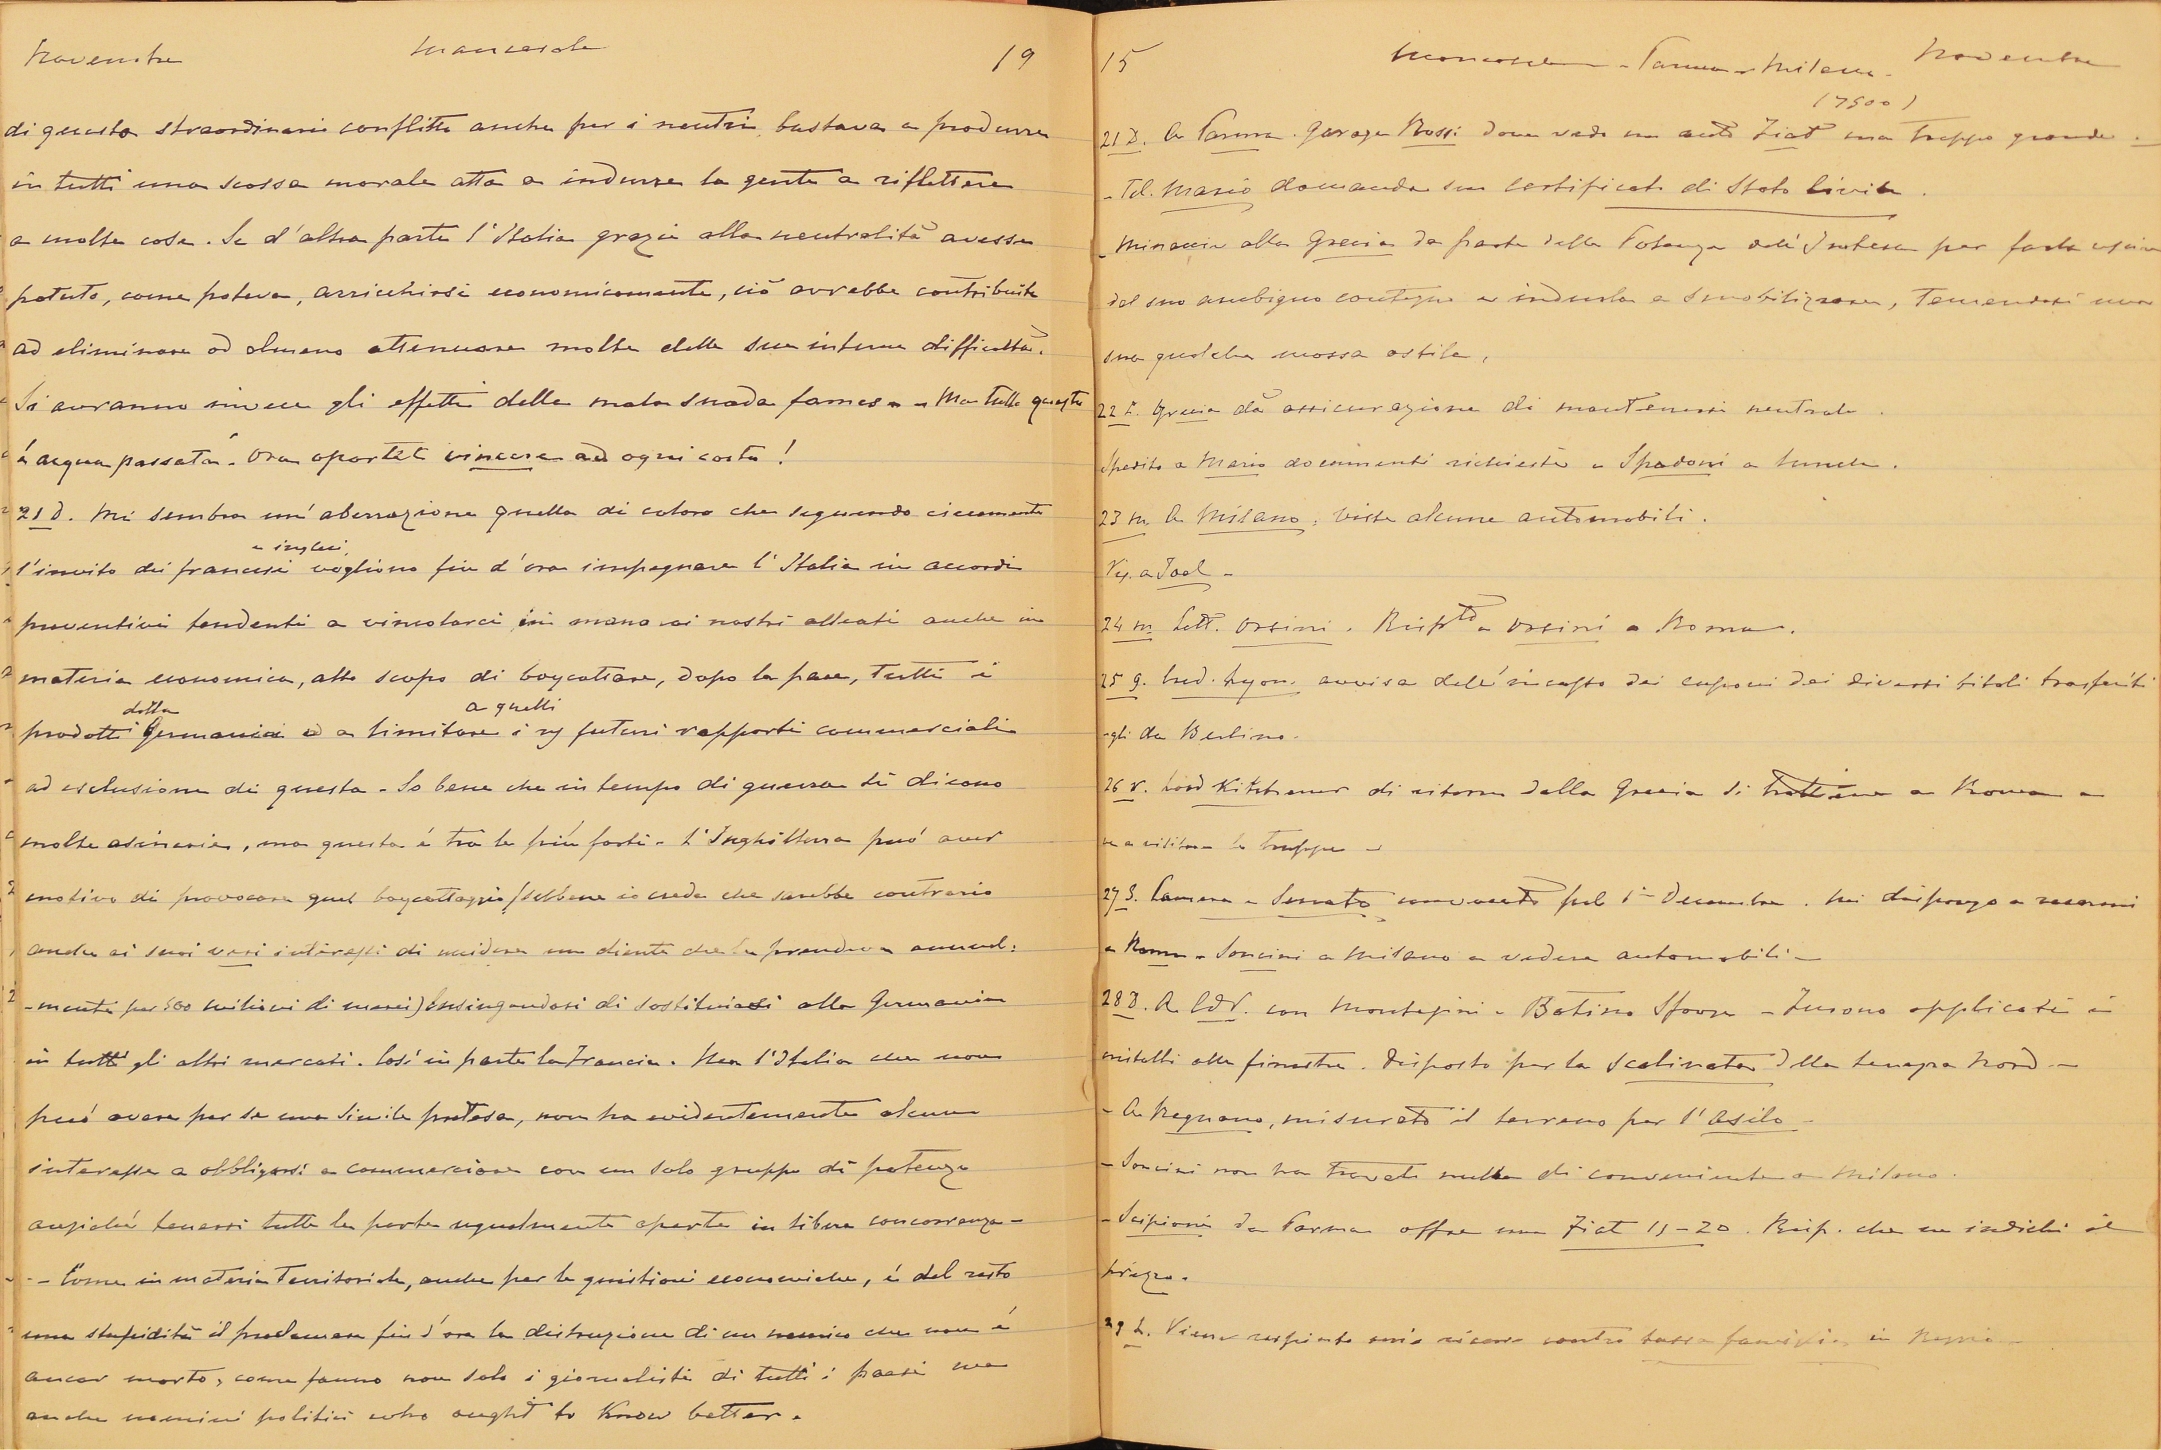 Novembre Mancasale 19
di questo straordinario conflitto anche per i neutri, bastava a produrre
in tutti una scossa morale atta a indurre la gente a riflettere
a molte cose. Se d'altra parte l'Italia grazie alla neutralità avesse
potuto, come poteva, arricchirsi economicamente, ciò avrebbe contribuito
ad eliminare od almeno attenuare molte delle sue interne difficoltà.
Si avranno invece gli effetti della mala suada fames. - Ma tutto questo
è acqua passata. Ora oportet vincere ad ogni costo!
21 D. Mi sembra un'aberrazione quella di coloro che seguendo ciecamente
l'invito dei francesi e inglesi, vogliono fin d'ora impegnare l'Italia in accordi
preventivi tendenti a vincolarci in mano ai nostri alleati anche in
materia economica, allo scopo di boycottare, dopo la pace, tutti i
prodotti della Germania ed a limitare i ns futuri rapporti commerciali a quelli
ad esclusione di questa. So bene che in tempo di guerra si dicono
molte asinerie, ma questa è tra le più forti. L'Inghilterra può aver
motivo di provocare quel boycottaggio (sebbene io creda che sarebbe contrario
anche ai suoi veri interessi di uccidere un cliente che le prendeva annual:
-mente per 500 milioni di merci) lusingandosi di sostituirsi alla Germania
in tutti gli altri mercati. Così in parte la Francia. Ma l'Italia che non
può avere per se una simile pretesa, non ha evidentemente alcun
interesse a obbligarsi a commerciare con un solo gruppo di potenze
anziché tenersi tutte le porte ugualmente aperte in libera concorrenza -
- Come in materia territoriale, anche per le quistioni economiche, è del resto
una stupidità il proclamare fin d'ora la distruzione di un nemico che non è
ancor morto, come fanno non solo i giornalisti di tutti i paesi ma
anche uomini politici who ought to know better.
15 - Parma - Milano - Novembre
(7500)
21 D. A Parma. Garage Rossi dove vedo un auto Fiat ma troppo grande -
- Tel. Mario domanda suo certificato di Stato Civile.
- Minaccie alla Grecia da parte delle Potenze dell'Intesa per farla uscire
dal suo ambiguo contegno e indurla a smobilizzare, temendosi una
sua qualche mossa ostile.
22 L. Grecia dà assicurazione di mantenersi neutrale.
Spedito a Mario documenti richiesti e Spadoni a lunch.
23 M. A Milano, viste alcune automobili.
Vis. a Joel -
24 M. Lett. Orsini. Rispto a Orsini a Roma.
25 G. Cred. Lyon. avvisa dell'incasso dei cuponi dei diversi titoli trasferiti
-gli da Berlino.
26 V. Lord Kitchener di ritorno dalla Grecia si trattiene a Roma e
va a visitare le truppe -
27 S. Camera e Senato convocati pel 1° Decembre. Mi dispongo a recarmi
a Roma - Soncini a Milano a vedere automobili -
28 D. A CdV. con Montessini e Botino Sforza - Furono applicati i
alle finestre. Disposto per la scalinata della terrazza Nord. -
- A Regnano, misurato il terreno per l'Asilo -
- Soncini non ha trovato nulla di conveniente a Milano.
- Scipioni da Parma offre una Fiat 15-20. Risp. che ne indichi il
prezzo.
29 L. Viene respinto mio ricorso contro tassa famiglia in Reggio -